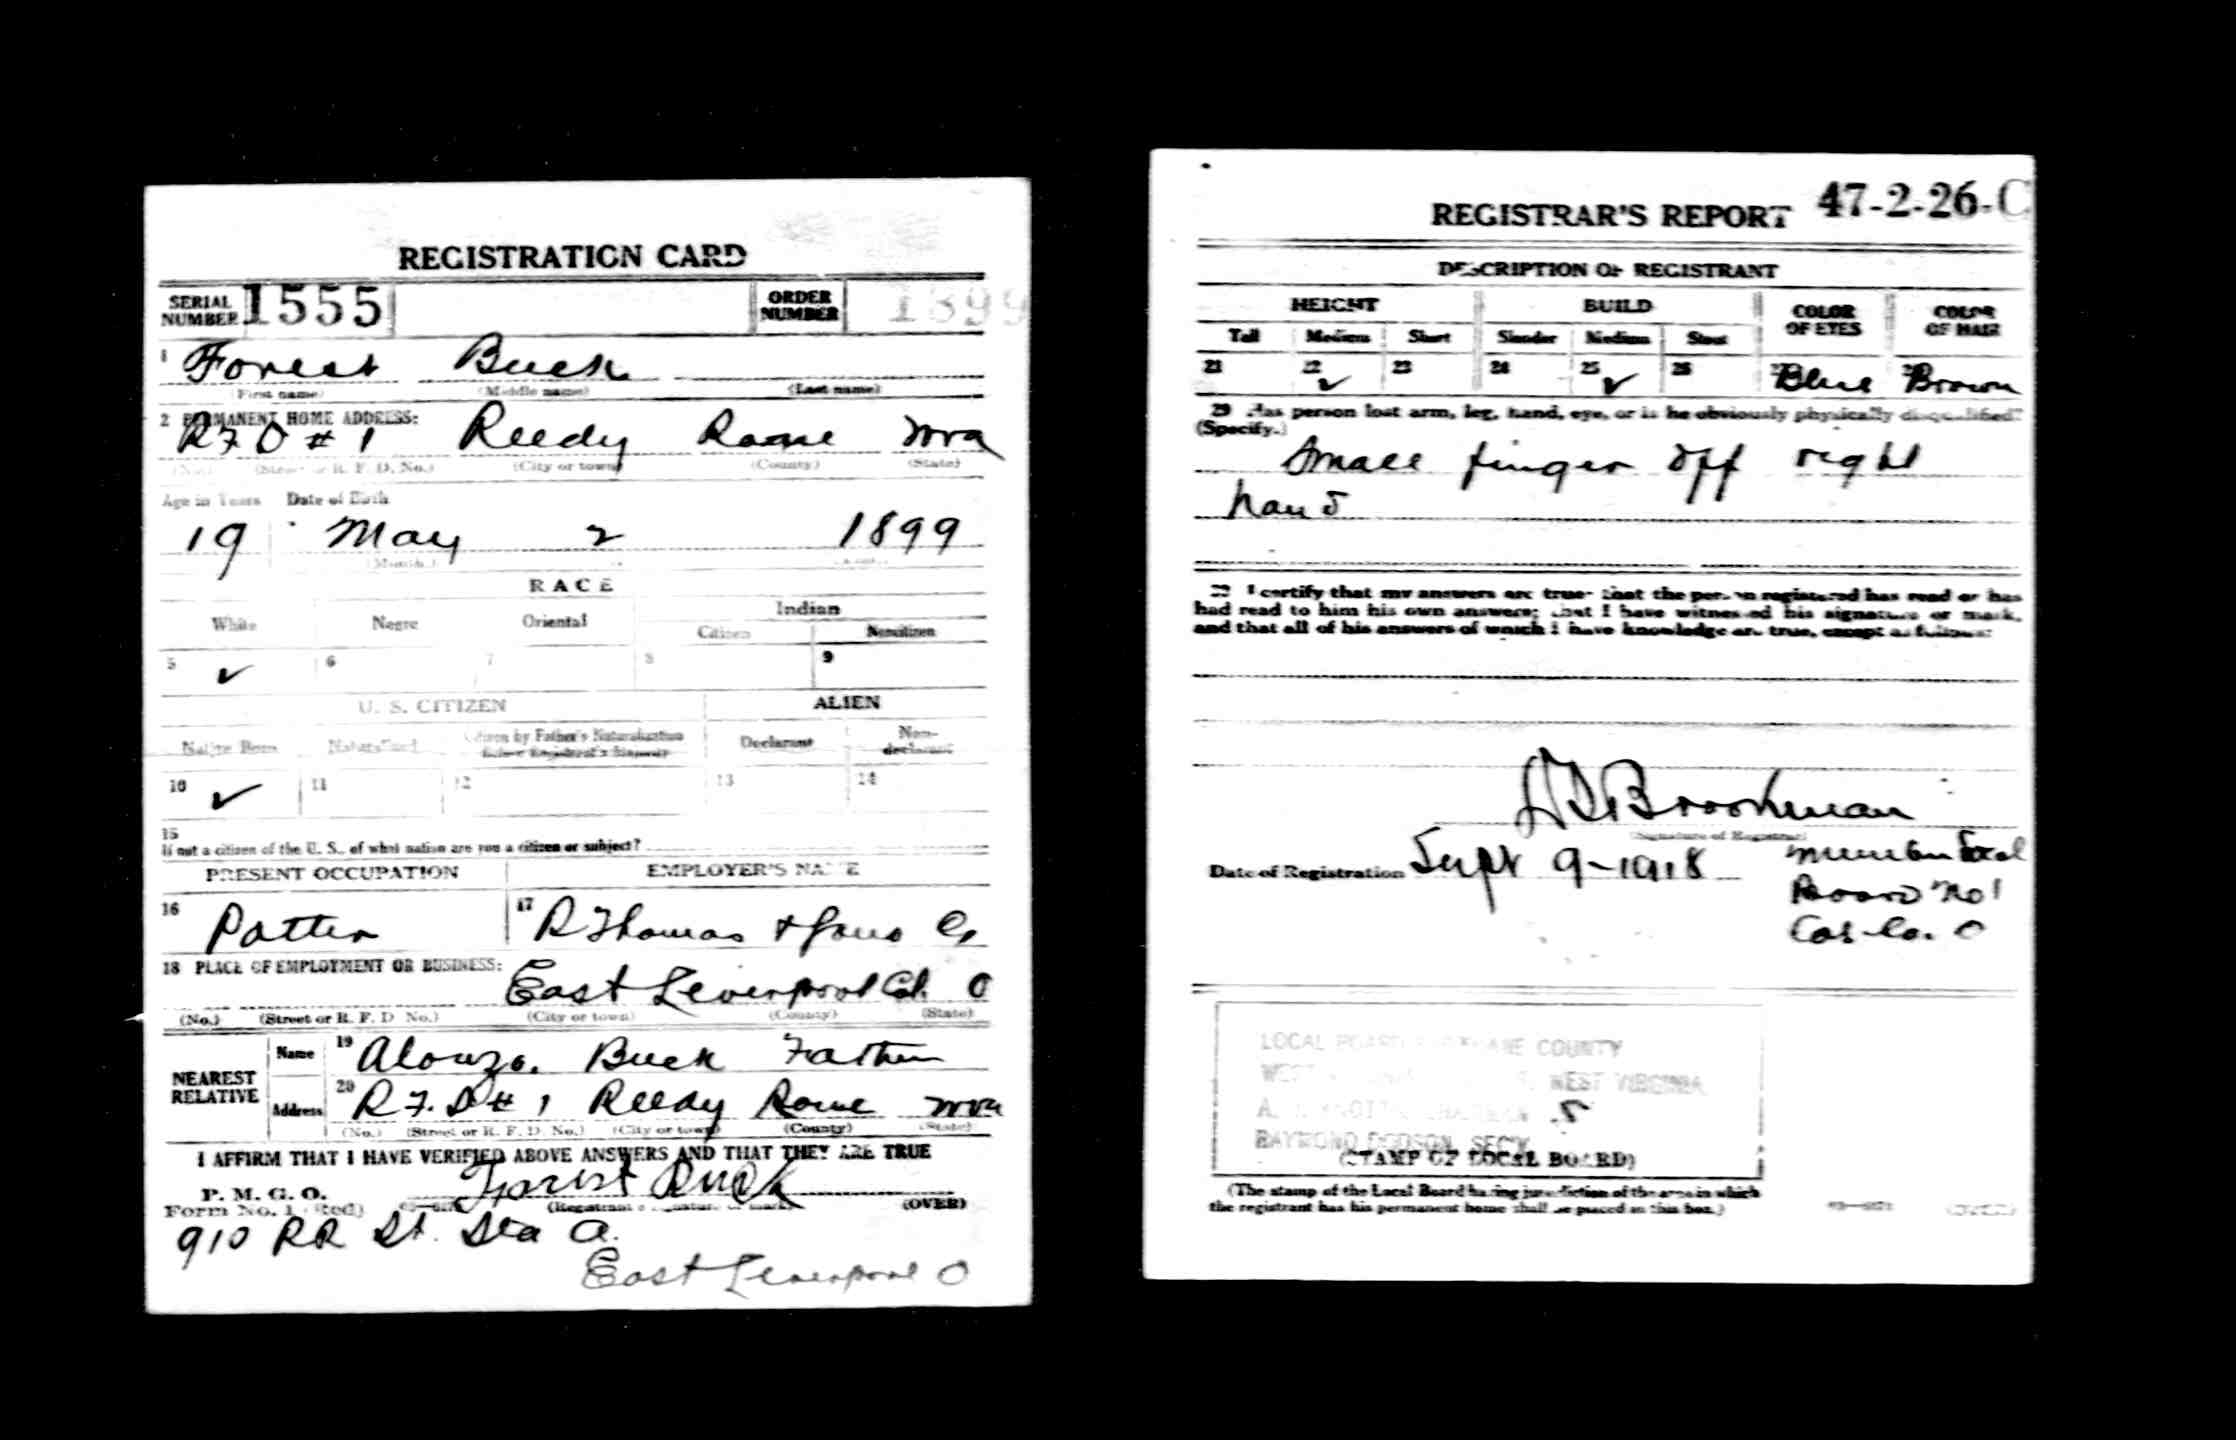 REGISTRATION CARD
SERIAL NUMBER 1555 ORDER NUMBER 1399
1 Forest Buck
(First name) (Middle name) (Last name)
2 PERMANENT HOME ADDRESS:
R F D # 1 Reedy Roane Wva
(No.) (Street or R. F. D. No.) (City or town) (County) (State)
Age in Years Date of Birth
19 May 2 1899
(Month.)
RACE
White Negro Oriental Indian
Citizen Noncitizen
5 ✓ 6 7 8 9
U. S. CITIZEN ALIEN
Native Born Naturalized Citizen by Father's Naturalization Before Registrant's Majority Declarant Non-declarant
10 ✓ 11 12 13 14
15
If not a citizen of the U. S., of what nation are you a citizen or subject?
PRESENT OCCUPATION EMPLOYER'S NAME
16 Potter 17 R Thomas & Sons Co
18 PLACE OF EMPLOYMENT OR BUSINESS:
East Liverpool Col. O
(No.) (Street or R. F. D. No.) (City or town) (County) (State)
NEAREST RELATIVE
Name 19 Alonzo. Buck Father
Address 20 R F. D # 1 Reedy Roane Wva
(No.) (Street or R. F. D. No.) (City or town) (County) (State)
I AFFIRM THAT I HAVE VERIFIED ABOVE ANSWERS AND THAT THEY ARE TRUE
P. M. G. O.
Form No. 1 (Red) Forist Buck
(Registrant's signature or mark) (OVER)
910 RR St. Sta A.
East Liverpool O
REGISTRAR'S REPORT 47-2-26-C
DESCRIPTION OF REGISTRANT
HEIGHT BUILD COLOR OF EYES COLOR OF HAIR
Tall Medium Short Slender Medium Stout
21 22 ✓ 23 24 25 ✓ 26 27 Blue 28 Brown
29 Has person lost arm, leg, hand, eye, or is he obviously physically disqualified?
(Specify.)
Small finger off right
hand
I certify that my answers are true; that the person registered has read or has
had read to him his own answers; that I have witnessed his signature or mark,
and that all of his answers of which I have knowledge are true, except as follows:
Brookman
(Signature of Registrar)
Date of Registration Sept 9-1918
Member Local
Board No 1
Col Co. O
LOCAL BOARD ROANE COUNTY
WEST VIRGINIA
RAYMOND DODSON, SEC'Y.
(STAMP OF LOCAL BOARD)
(The stamp of the Local Board having jurisdiction of the area in which
the registrant has his permanent home shall be placed in this box.)
(OVER)